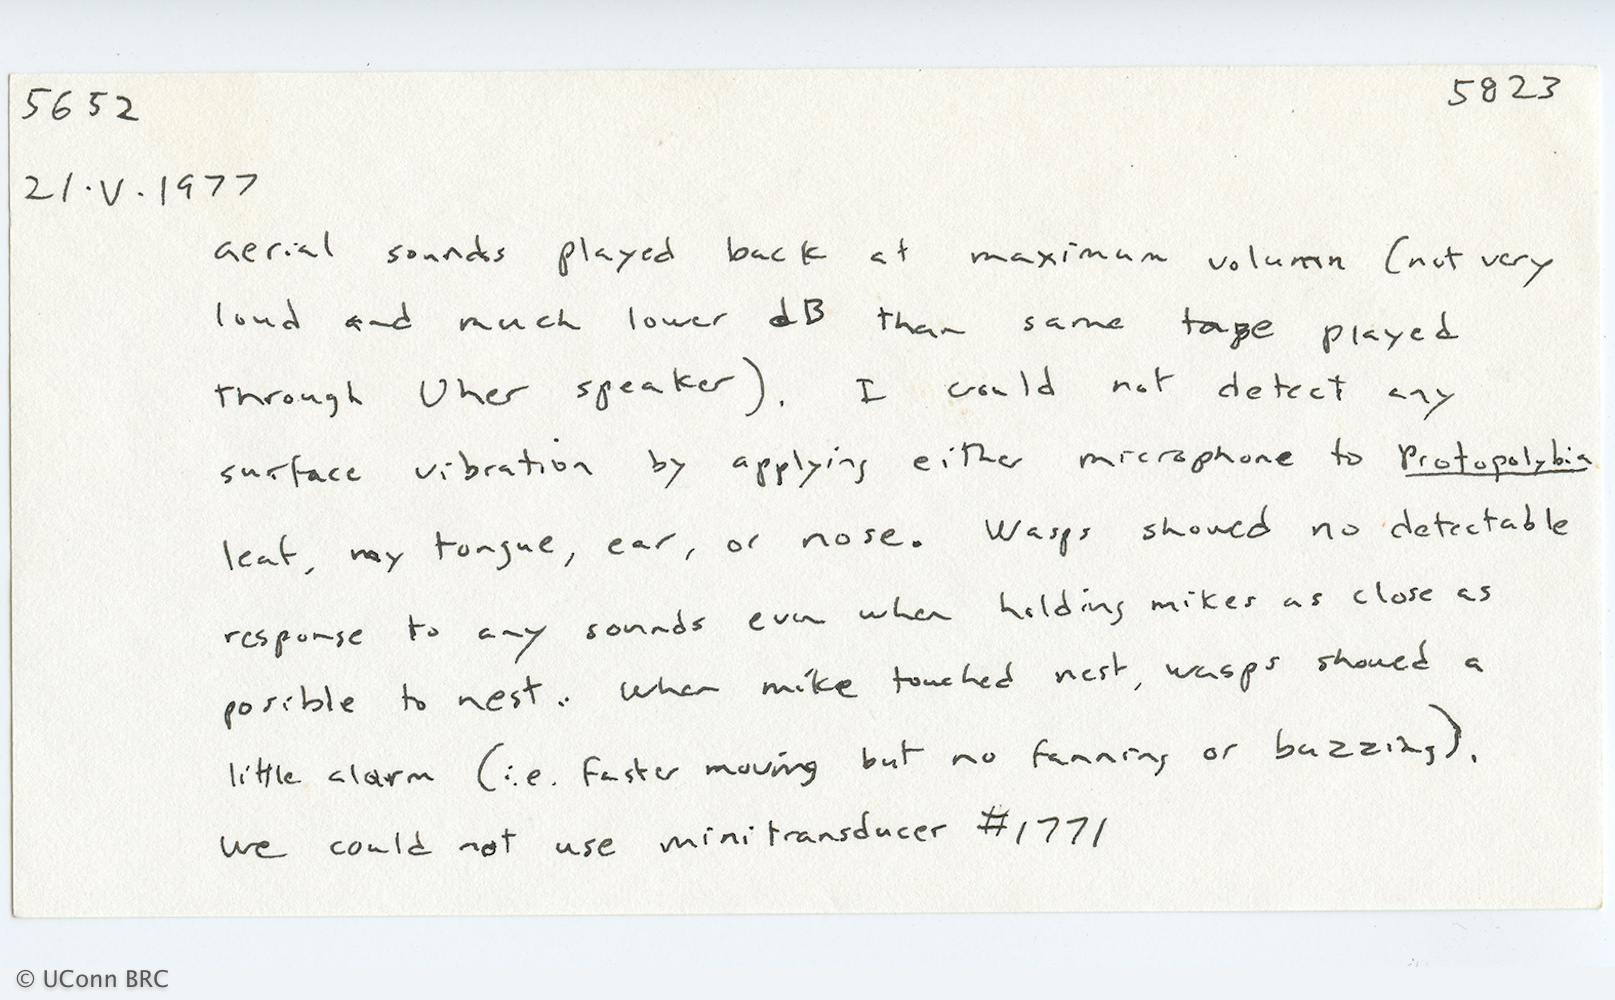 5652 5823
21.V.1977
aerial sounds played back at maximum volumn (not very
loud and much lower dB than same tape played
through Uher speaker). I could not detect any
surface vibration by applying either microphone to Protopolybia
leaf, my tongue, ear, or nose. Wasps showed no detectable
response to any sounds even when holding mikes as close as
posible to nest. When mike touched nest, wasps showed a
little alarm (i.e. faster moving but no fanning or buzzing).
We could not use minitransducer #1771
© UConn BRC